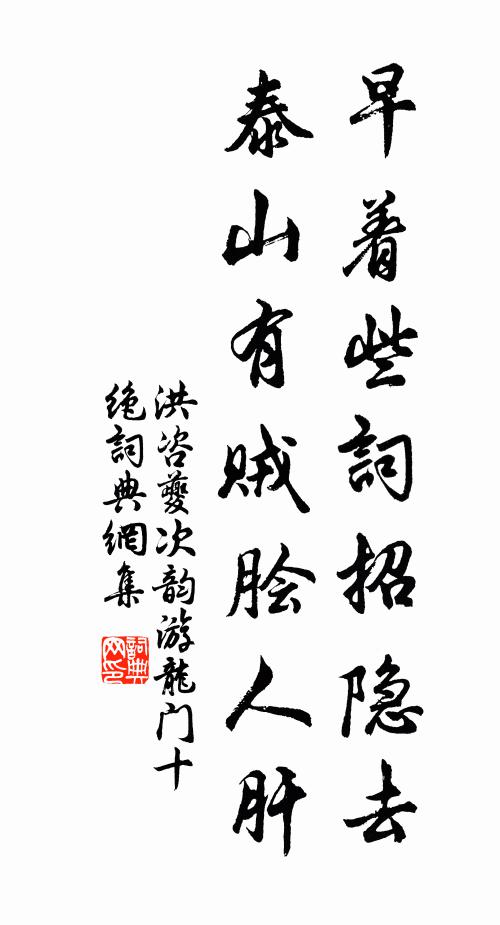 早着些詞招隐去
泰山有贼脍人肝
洪咨夔次韵游龍门十
绝詞典網集
詞典
网印